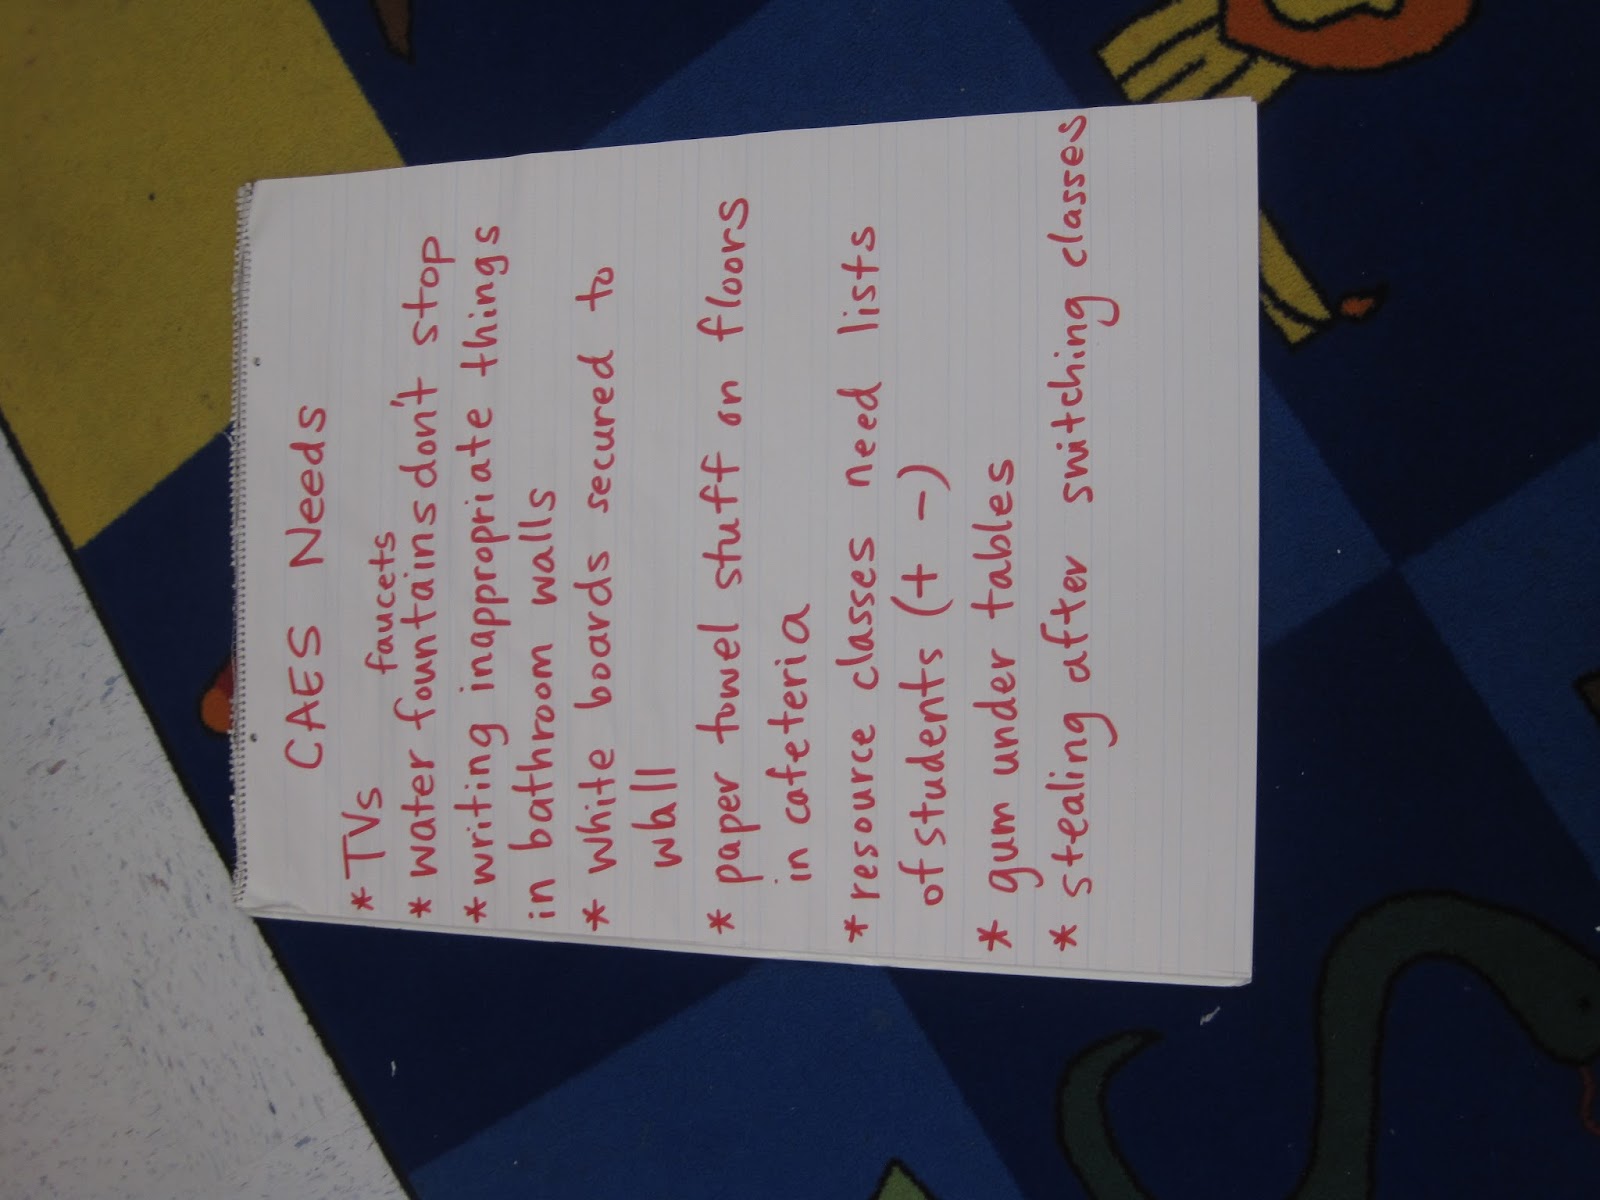 CAES Needs
* TVs
faucets
* water fountains don't stop
* writing inappropriate things
in bathroom walls
* white boards secured to
wall
* paper towel stuff on floors
in cafeteria
* resource classes need lists
of students (+ -)
* gum under tables
* stealing after switching classes